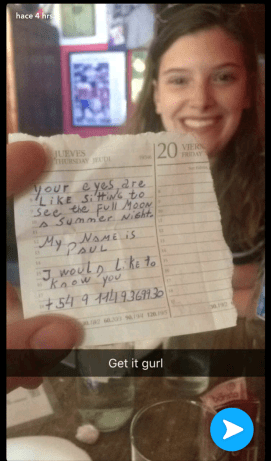 hace 4 hrs
JUEVES
THURSDAY
20 VIERN
FRIDAY
your eyes are
Like sitting to
see the full moon
a summer night
My name is
PAUL
I would Like to
know you
+54 9 1149369930
Get it gurl